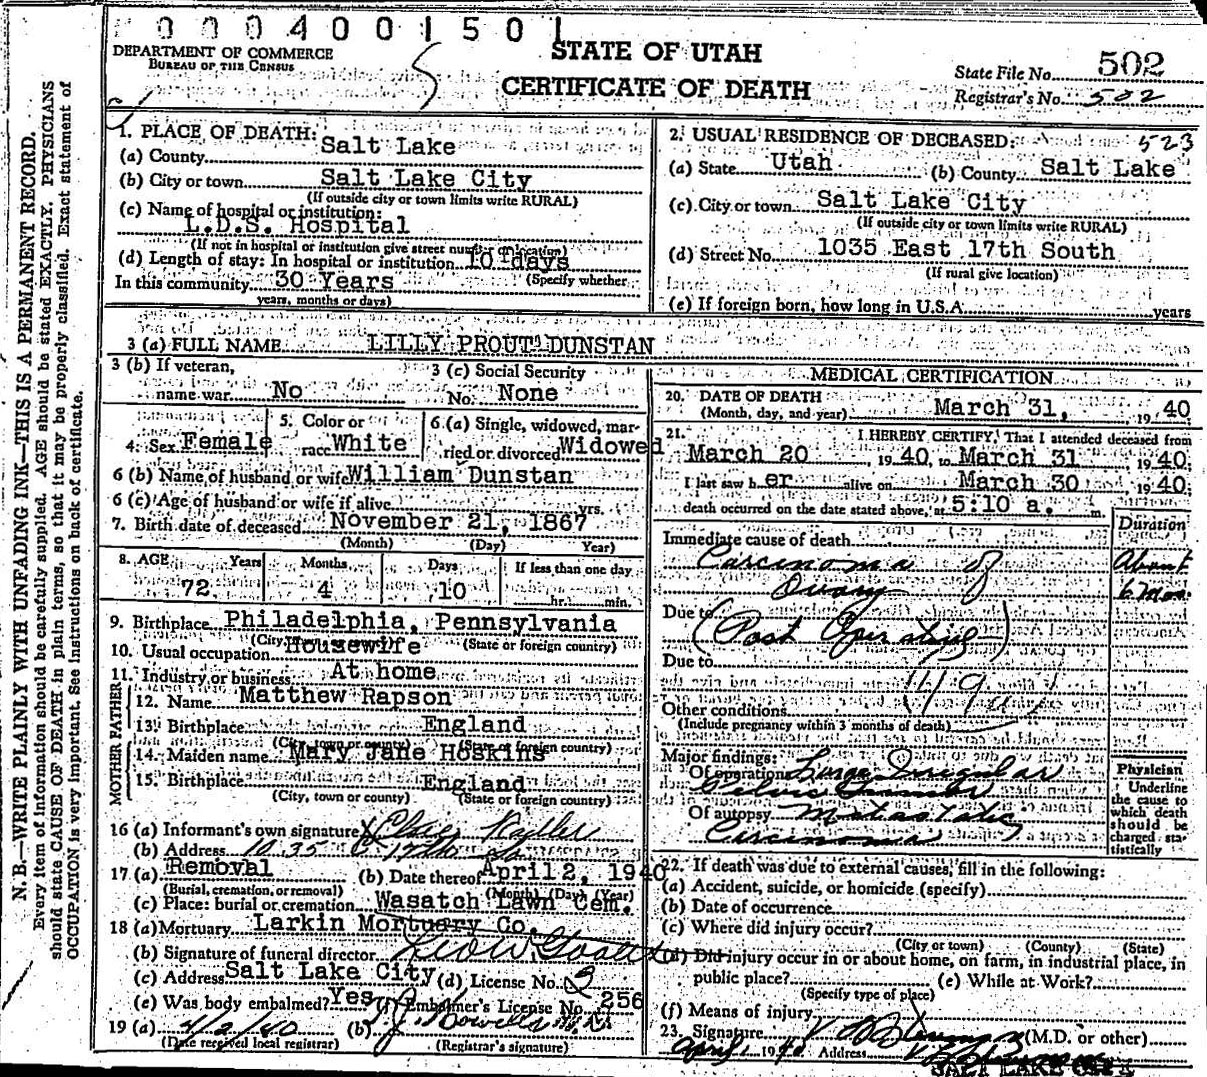 0004001501
DEPARTMENT OF COMMERCE
BUREAU OF THE CENSUS
STATE OF UTAH
CERTIFICATE OF DEATH
State File No. 502
Registrar's No. 502
523
N. B.—WRITE PLAINLY WITH UNFADING INK—THIS IS A PERMANENT RECORD.
Every item of information should be carefully supplied. AGE should be stated EXACTLY. PHYSICIANS
should state CAUSE OF DEATH in plain terms, so that it may be properly classified. Exact statement of
OCCUPATION is very important. See instructions on back of certificate.
1. PLACE OF DEATH:
(a) County Salt Lake
(b) City or town Salt Lake City
(If outside city or town limits write RURAL)
(c) Name of hospital or institution:
L.D.S. Hospital
(If not in hospital or institution give street number or location)
(d) Length of stay: In hospital or institution 10 days
(Specify whether
In this community 30 Years
years, months or days)
2. USUAL RESIDENCE OF DECEASED:
(a) State Utah (b) County Salt Lake
(c) City or town Salt Lake City
(If outside city or town limits write RURAL)
(d) Street No. 1035 East 17th South
(If rural give location)
(e) If foreign born, how long in U.S.A. years
3 (a) FULL NAME LILLY PROUT DUNSTAN
3 (b) If veteran,
name war No
3 (c) Social Security
No. None
4. Sex Female
5. Color or
race White
6 (a) Single, widowed, mar-
ried or divorced Widowed
6 (b) Name of husband or wife William Dunstan
6 (c) Age of husband or wife if alive yrs.
7. Birth date of deceased November 21, 1867
(Month) (Day) (Year)
8. AGE Years Months Days If less than one day
72 4 10 hr. min.
9. Birthplace Philadelphia, Pennsylvania
(City (State or foreign country)
10. Usual occupation Housewife
11. Industry or business At home
FATHER
12. Name Matthew Rapson
13. Birthplace England
(City, town or county) (State or foreign country)
MOTHER
14. Maiden name Mary Jane Hoskins
15. Birthplace England
(City, town or county) (State or foreign country)
16 (a) Informant's own signature
(b) Address 1035 E 17th So
17 (a) Removal (b) Date thereof April 2, 1940
(Burial, cremation, or removal) (Month) (Day) (Year)
(c) Place: burial or cremation Wasatch Lawn Cem.
18 (a) Mortuary Larkin Mortuary Co.
(b) Signature of funeral director
(c) Address Salt Lake City (d) License No.
(e) Was body embalmed? Yes (f) Embalmer's License No. 256
19 (a) 4/2/40 (b)
(Date received local registrar) (Registrar's signature)
MEDICAL CERTIFICATION
20. DATE OF DEATH
(Month, day, and year) March 31, 1940
21. I HEREBY CERTIFY, That I attended deceased from
March 20 1940, to March 31 1940;
I last saw her alive on March 30 1940;
death occurred on the date stated above, at 5:10 a. m.
Duration
Immediate cause of death
Carcinoma of About
Ovary 6 mos.
Due to (Post Operative)
Due to
Other conditions
(Include pregnancy within 3 months of death)
Major findings:
Of operation Large Irregular
Pelvic Tumor
Of autopsy Metastatic
Carcinoma
Physician
Underline
the cause to
which death
should be
charged sta-
tistically
22. If death was due to external causes, fill in the following:
(a) Accident, suicide, or homicide (specify)
(b) Date of occurrence
(c) Where did injury occur?
(City or town) (County) (State)
(d) Did injury occur in or about home, on farm, in industrial place, in
public place? (e) While at Work?
(Specify type of place)
(f) Means of injury
23. Signature (M.D. or other)
April 1 1940 Address
SALT LAKE CITY